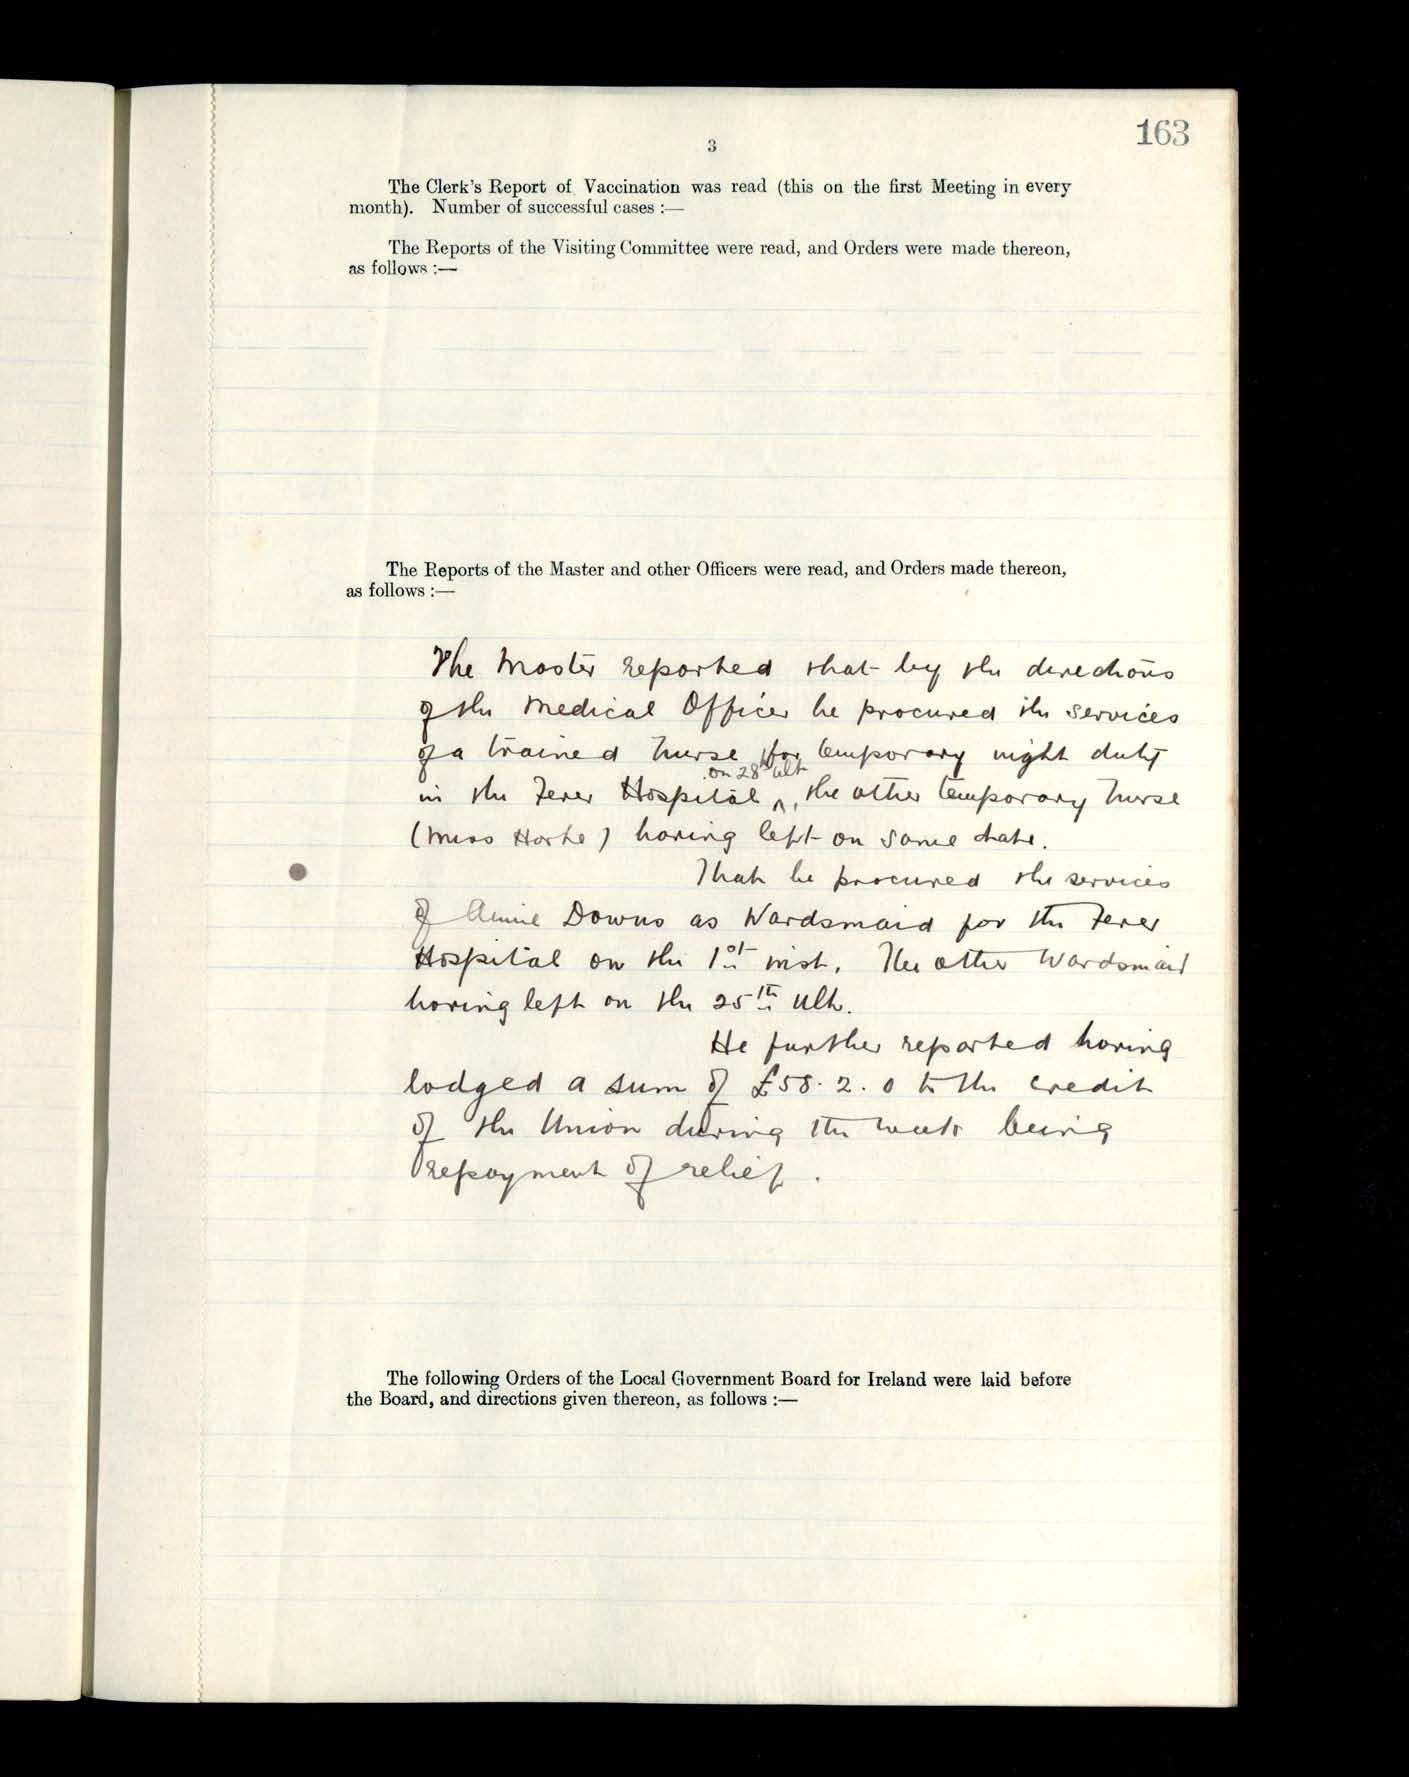 163
3
The Clerk's Report of Vaccination was read (this on the first Meeting in every
month). Number of successful cases :—
The Reports of the Visiting Committee were read, and Orders were made thereon,
as follows :—
The Reports of the Master and other Officers were read, and Orders made thereon,
as follows :—
The Master reported that by the directions
of the Medical Officer he procured the services
of a trained nurse for temporary night duty
on 28th ult
in the Fever Hospital ^, the other temporary nurse
(Miss ) having left on same date.
That he procured the services
of Annie Downs as Wardsmaid for the Fever
Hospital on the 1st inst. The other Wardsmaid
having left on the 25th ult.
He further reported having
lodged a sum of £58. 2. 0 to the credit
of the Union during the week being
repayment of relief.
The following Orders of the Local Government Board for Ireland were laid before
the Board, and directions given thereon, as follows :—